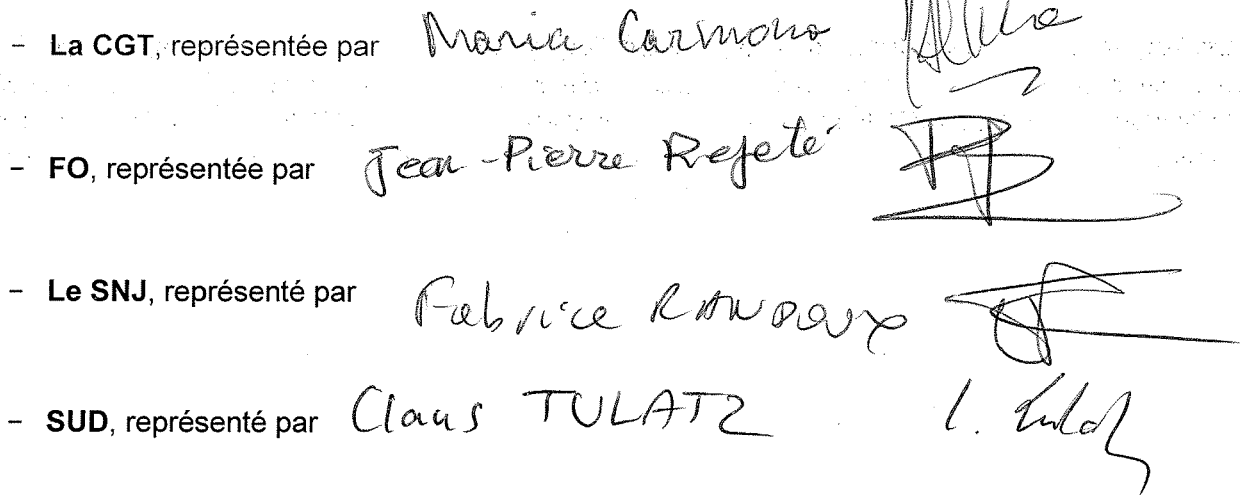 - La CGT, représentée par Maria Carmona
- FO, représentée par Jean-Pierre Rejeté
- Le SNJ, représenté par Fabrice RANDOUX
- SUD, représenté par Claus TULATZ